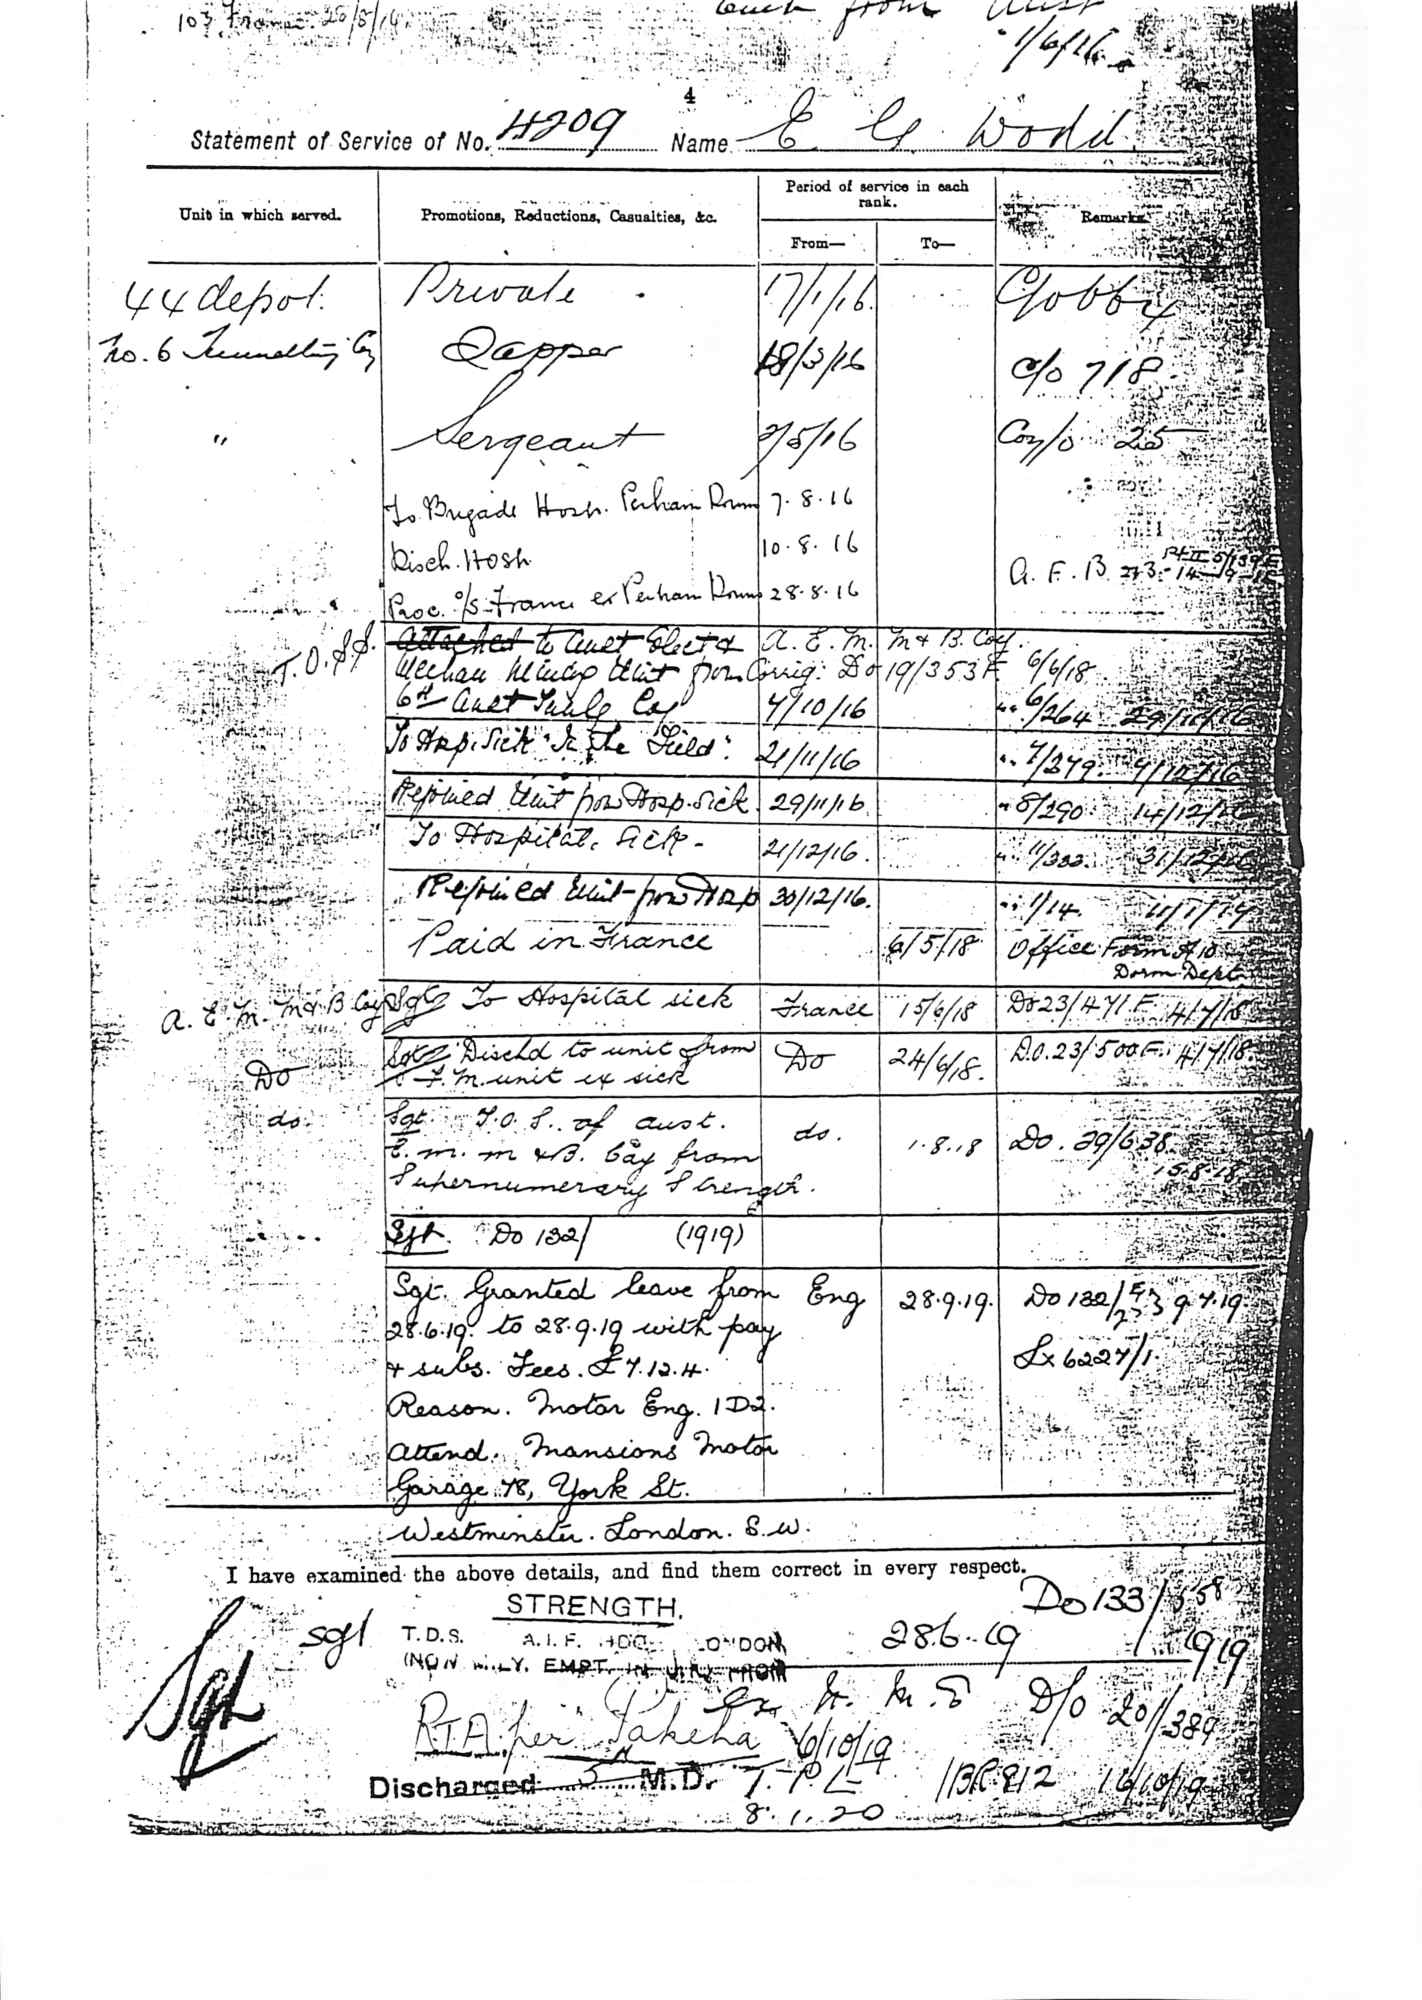 103 France 20/8/16
from Aust
1/6/16
4
Statement of Service of No. 4209 Name E. G. Wodd.
Unit in which served. Promotions, Reductions, Casualties, &c. Period of service in each rank. Remarks.
From— To—
44 depot. Private 17/1/16.
No. 6 Tunnelling Coy Sapper 18/3/16 C/o 718.
" Sergeant 2/5/16 Coy/o 25
To Brigade Hosp. Perham Down 7.8.16
Disch. Hosp 10.8.16
A. F. B. 213.
Proc. o/s France ex Perham Down 28.8.16
T.O.S.S. Attached to Aust Elect & A. E. M. M & B. Coy.
Mechan Mining Unit from Corrig: Do 19/353 F. 6/6/18
6th Aust Tunlg Coy 7/10/16 6/264 29/11/16
To Hosp. Sick "In The Field". 21/11/16 7/279. 7/12/16
Rejoined Unit from Hosp. Sick. 29/11/16 8/290 14/12/16
To Hospital. Sick - 21/12/16. 11/303. 31/12/16
Rejoined Unit from Hosp 30/12/16. 1/14. 11/1/17
Paid in France 6/5/18 Office Form A10
Dorm Dept
A. E. M. M & B Coy Sgt To Hospital sick France 15/6/18 Do 23/471 F. 4/7/18
Do Sgt Dischd to unit from Do 24/6/18. D.O. 23/500 F. 4/7/18.
F. M. unit ex sick
do. Sgt. T.O.S. of Aust. do. 1.8.18 Do. 29/638
E. M. M & B. Coy from 15.8.18
Supernumerary Strength.
Sgt. Do 132/ (1919)
Sgt. Granted leave from Eng 28.9.19. Do 132/ 9.7.19.
28.6.19. to 28.9.19 with pay
& subs. Fees. £7.12.4. Lx 6227/1.
Reason. Motor Eng. 1D2.
Attend. Mansions Motor
Garage 78, York St.
Westminster. London. S.W.
I have examined the above details, and find them correct in every respect.
STRENGTH. Do 133/558
Sgt T.D.S. A.I.F. HDQ. LONDON 28.6.19 1919
(NON MILY. EMPT. IN U.K.) FROM
Sgt ex N. M. E D/o 201/389
RTA per "Pakeha" 6/10/19
Discharged 5 M.D. T. P. E 1BR 812 16/10/19
8.1.20